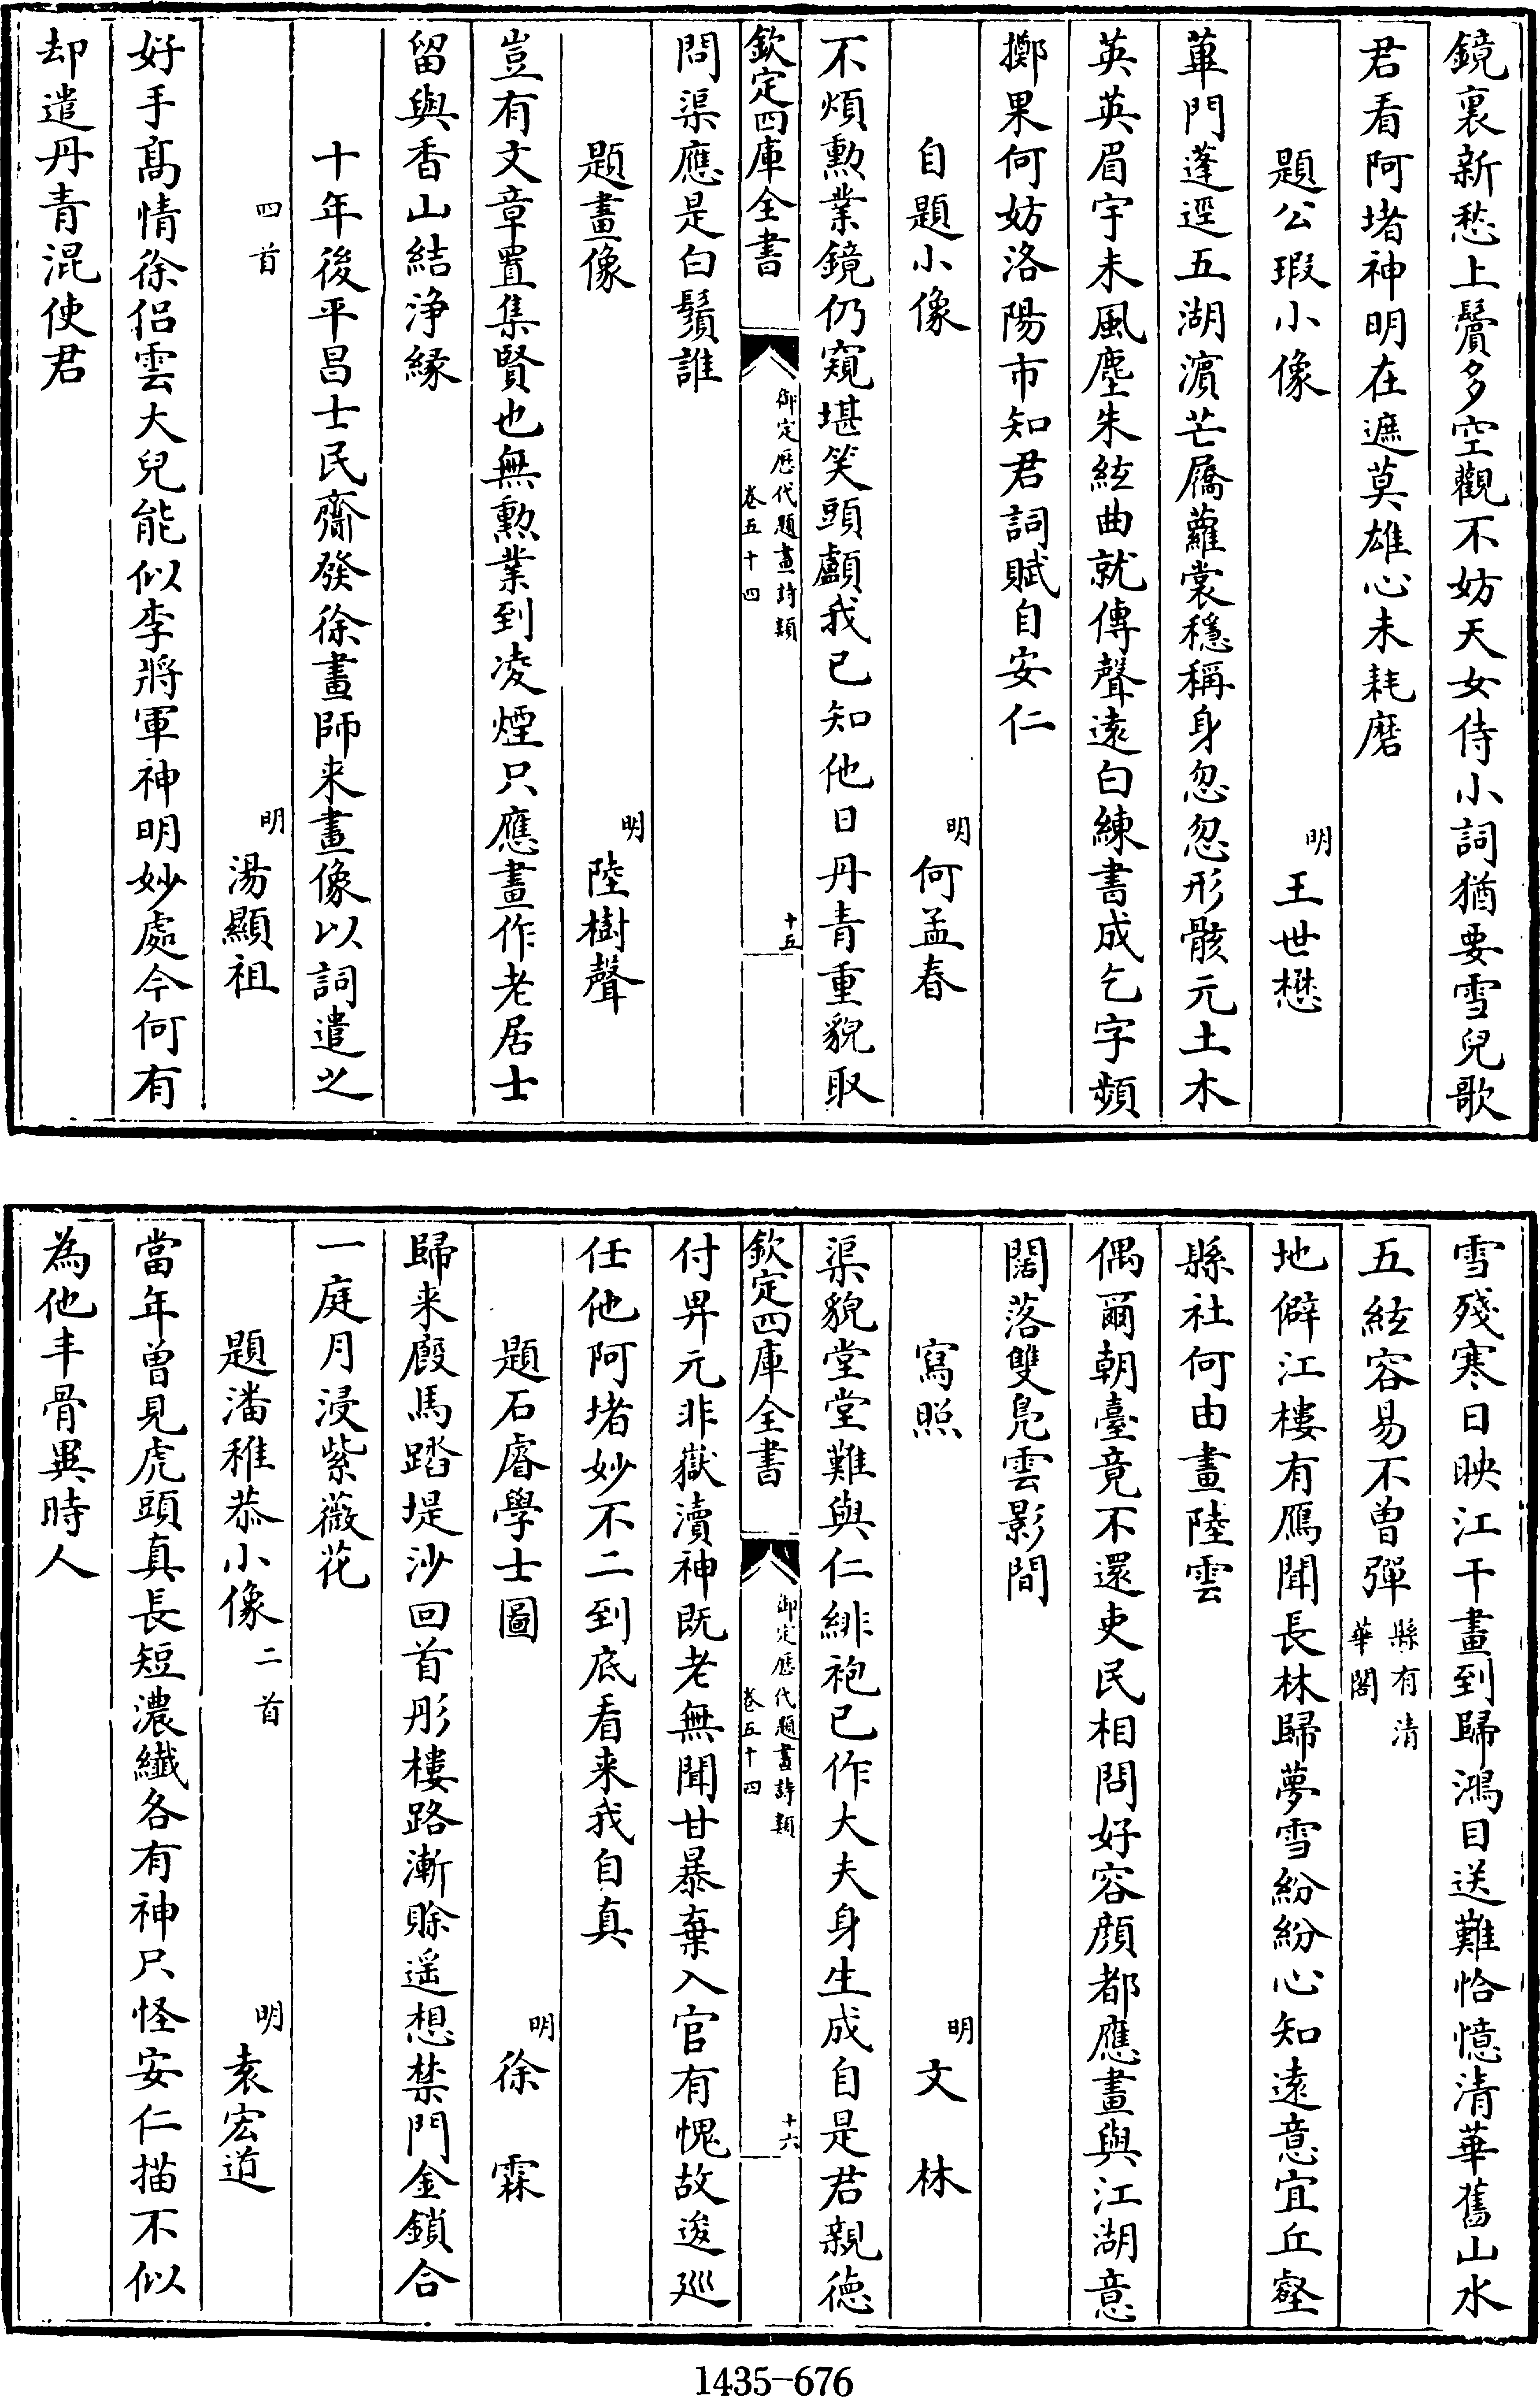 鏡裏新愁上鬢多空觀不妨天女侍小詞猶要雪兒歌
君看阿堵神明在遮莫雄心未耗磨
題公瑕小像
明王世懋
蓽門蓬逕五湖濵芒屩蘿裳穩稱身忽忽形骸元土木
英英眉宇未風塵朱絃曲就傳聲遠白練書成乞字頻
擲果何妨洛陽市知君詞賦自安仁
自題小像
明何孟春
不煩勲業鏡仍窺堪笑頭顱我已知他日丹青重貌取
欽定四庫全書
御定歴代題畫詩類
卷五十四
十五
問渠應是白鬚誰
題畫像
明陸樹聲
豈有文章置集賢也無勲業到凌煙只應畫作老居士
留與香山結浄縁
十年後平昌士民齎發徐畫師来畫像以詞遣之
四首
明湯顯祖
好手髙情徐侣雲大兒能似李將軍神明妙處今何有
却遣丹青混使君
雪殘寒日映江干畫到歸鴻目送難恰憶清華舊山水
五絃容易不曽彈縣有清華閣
地僻江樓有鴈聞長林歸夢雪紛紛心知遠意宜丘壑
縣社何由畫陸雲
偶爾朝臺竟不還吏民相問好容顔都應畫與江湖意
闊落雙鳬雲影間
寫照
明文林
渠貌堂堂難與仁緋袍已作大夫身生成自是君親徳
欽定四庫全書
御定歴代題畫詩類
卷五十四
十六
付畀元非嶽瀆神既老無聞甘暴棄入官有愧故逡巡
任他阿堵妙不二到底看来我自真
題石㕡學士圖
明徐霖
歸来廐馬踏堤沙回首彤樓路漸賒遥想禁門金鎖合
一庭月浸紫薇花
題潘稚恭小像二首
明袁宏道
當年曽見虎頭真長短濃纎各有神只怪安仁描不似
為他丰骨異時人
1435-676